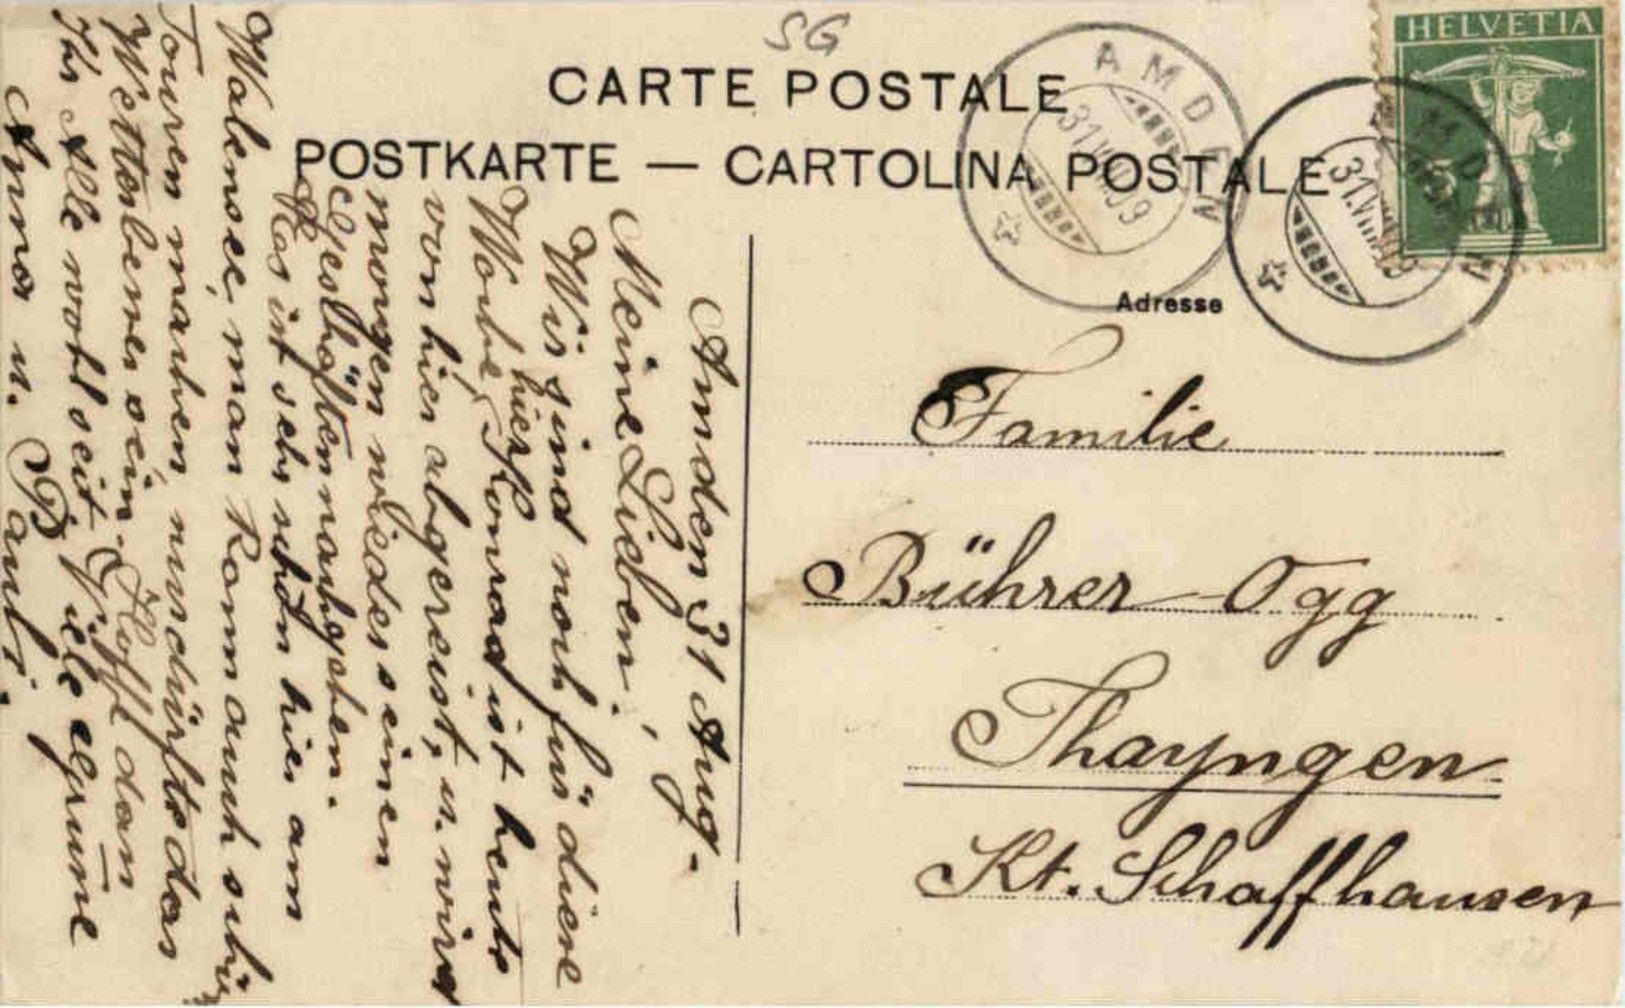 SG
CARTE POSTALE
POSTKARTE — CARTOLINA POSTALE
HELVETIA
5
AMDEN
31.VIII.09
AMDEN
31.VIII.09
Adresse
Familie
Bührer-Ogg
Thayngen
Kt. Schaffhausen
Amden 31 Aug.
Meine Lieben!
Wir sind noch für diese
Woche hier, Konrad ist heute
von hier abgereist, u. wird
morgen wieder seinen
Geschäften nachgehen.
Es ist sehr schön hier am
Walensee, man kann auch schöne
Touren machen, nur dürfte das
Wetter besser sein. Hoffe dass
Ihr Alle wohl seit. Viele Grüsse
Anna u. Pauli.